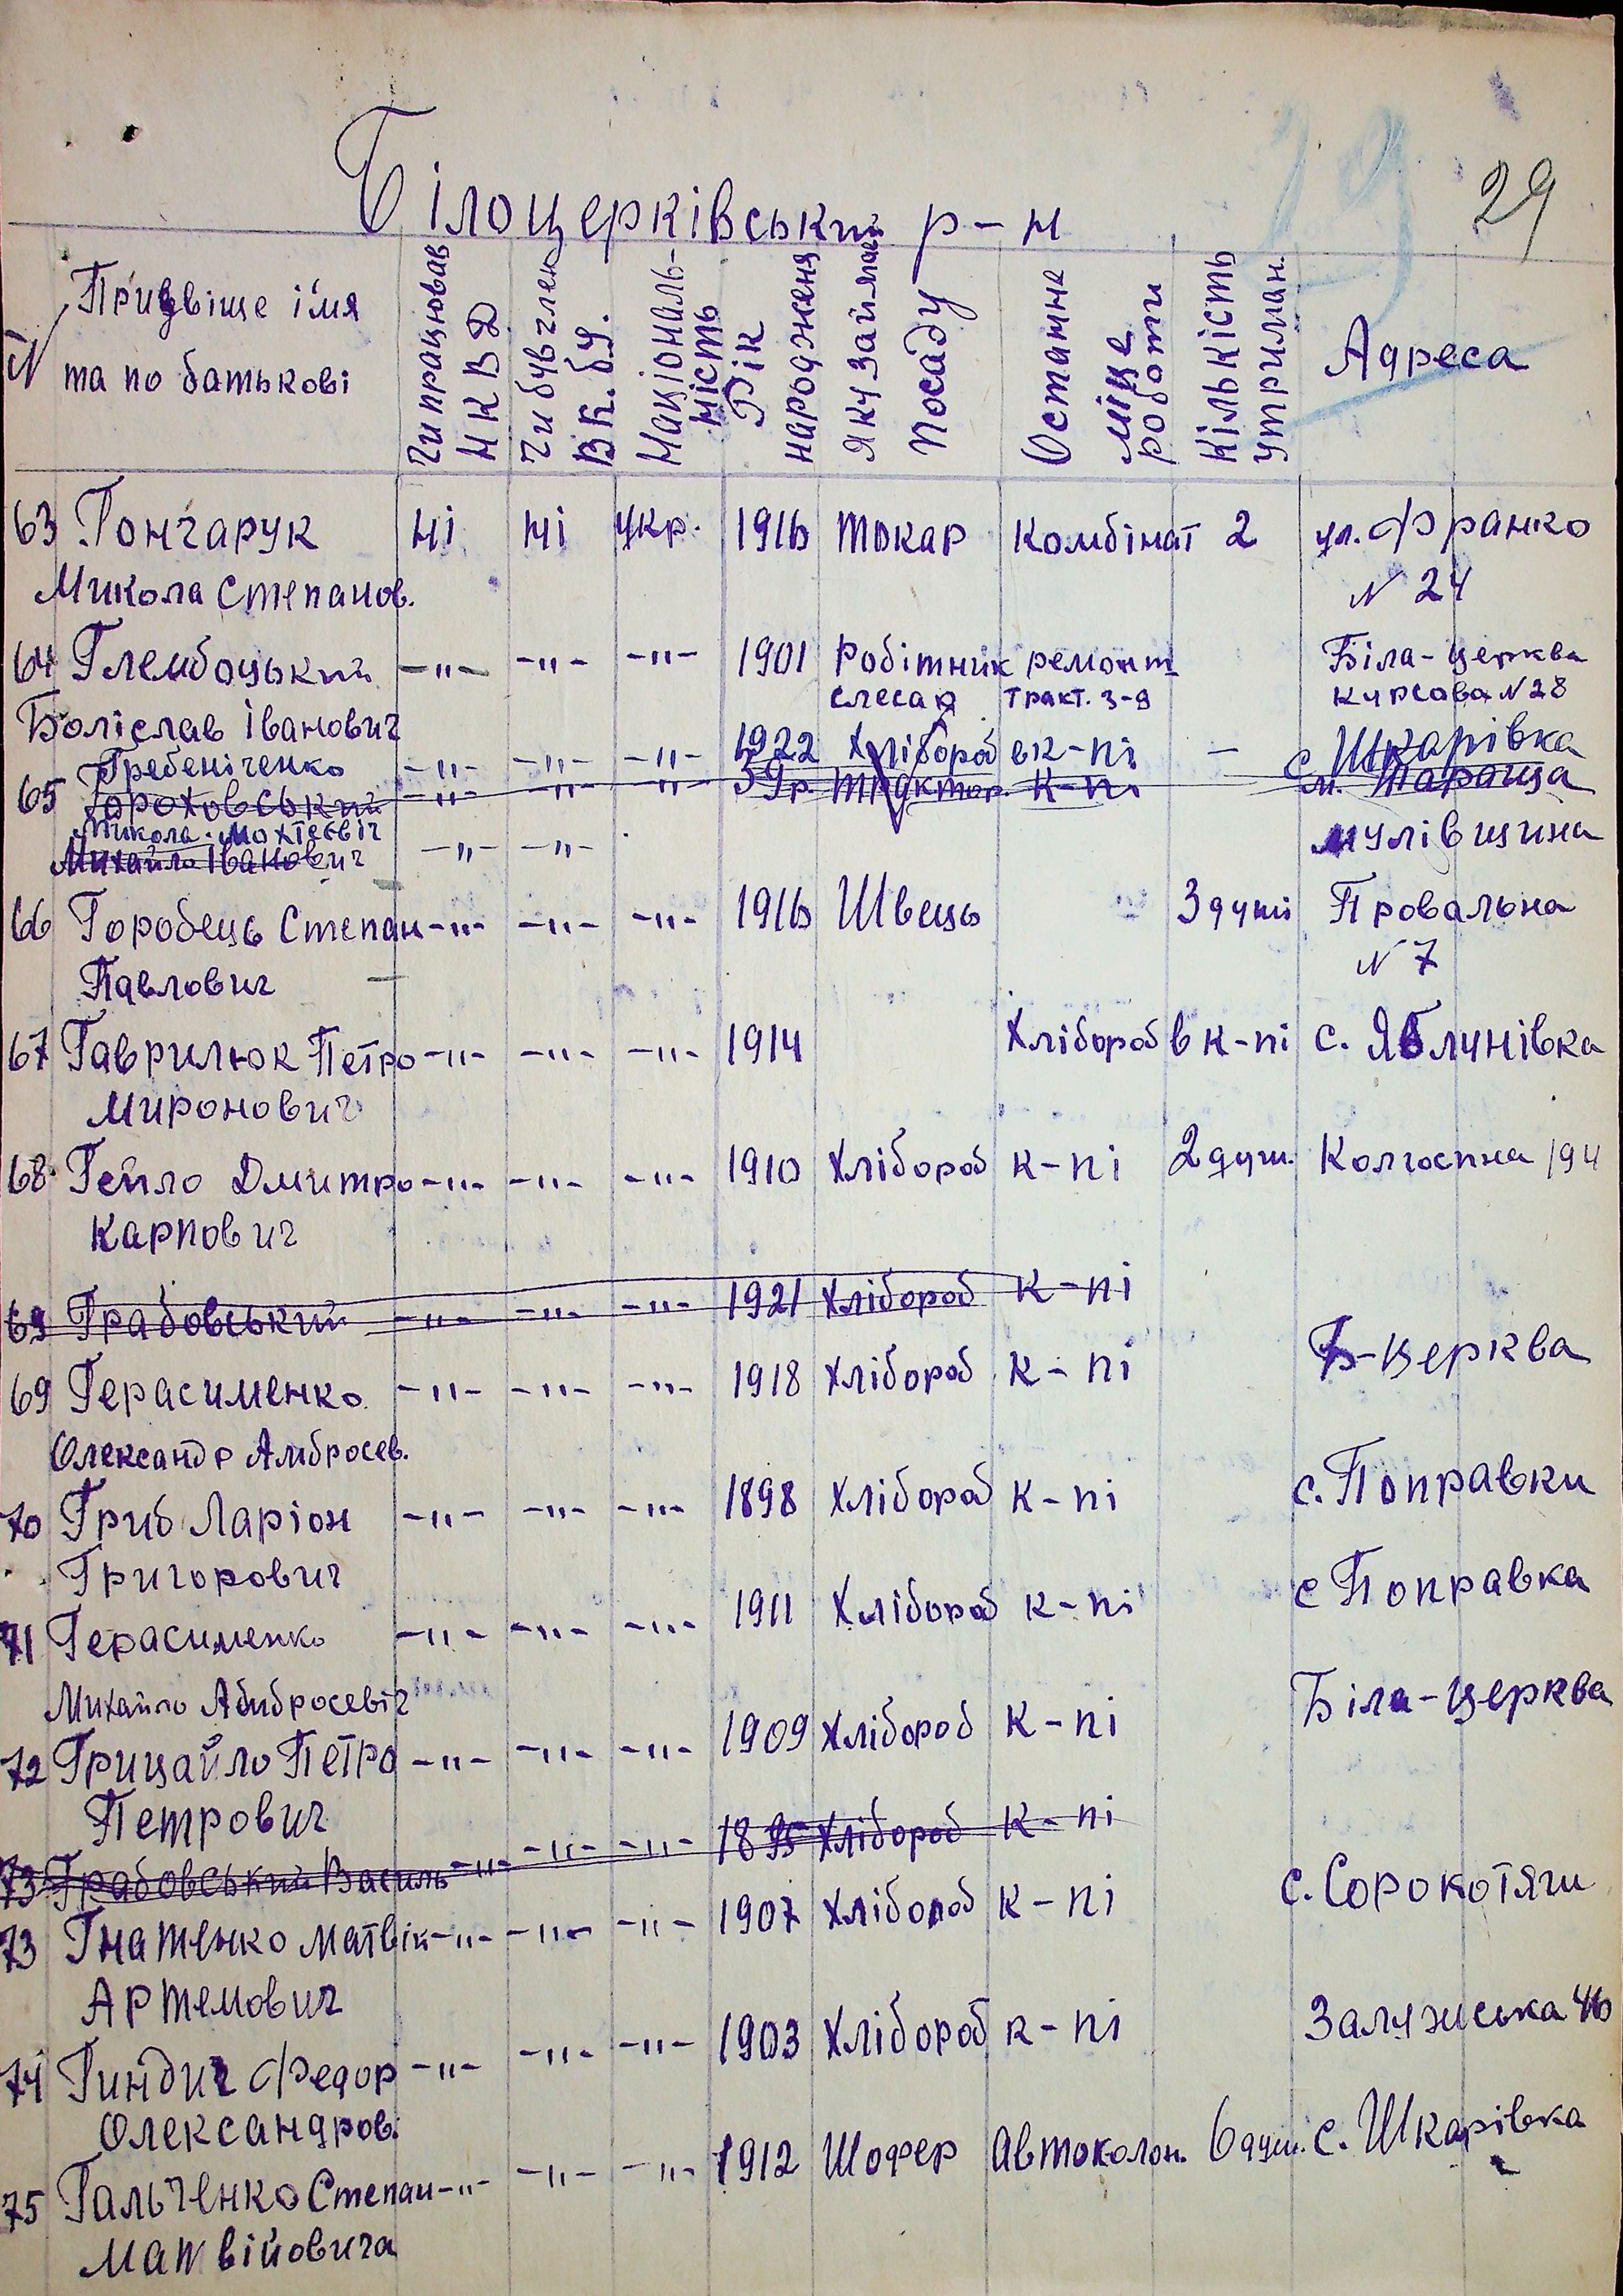 29
Білоцерківський р-н
N Призвіще імя та по батькові
Чи працював НКВД
Чи був член ВК.бу.
Національність
Рік народженя
Яку займає Посаду
Остатнє місце роботи
Кількість утриман.
Адреса
63 Гончарук ні ні укр. 1916 токар Комбінат 2 ул. Франко
Микола Степанов. N 24
64 Глембоцький -"- -"- -"- 1901 Робітник ремонт Біла-церква
слесар тракт. з-д Курсова N 28
Боліслав Іванович
Гребеніченко -"- -"- -"- 1922 Хлібороб в к-пі - с. Шкарівка
65 Гороховський -"- -"- -"- 39р. трактор. к-пі м. Тараща
Микола
Михайло Іванович -"- -"- мулівщина
66 Городець Степан -"- -"- -"- 1916 Швець 3 душі Провальна
Павлович N 7
67 Гаврилюк Петро -"- -"- -"- 1914 Хлібороб в к-пі с. Яблунівка
Миронович
68 Гейло Дмитро -"- -"- -"- 1910 Хлібороб к-пі 2 душ. Колгоспна 194
Карпович
69 Грабовський -"- -"- -"- 1921 Хлібороб к-пі
69 Герасименко -"- -"- -"- 1918 Хлібороб к-пі Б-церква
Олександр Амбросев.
70 Гриб Ларіон -"- -"- -"- 1898 Хлібороб к-пі с. Поправки
Григорович
71 Герасименко -"- -"- -"- 1911 Хлібороб к-пі с Поправка
Михайло Абибросевіч
72 Грицайло Петро -"- -"- -"- 1909 Хлібороб к-пі Біла-церква
Петрович
73 Грабовський Василь -"- -"- -"- 1895 Хлібороб к-пі
73 Гнатенко Матвій -"- -"- -"- 1907 Хлібороб к-пі с. Сорокотяги
Артемович
74 Гиндич Федор -"- -"- -"- 1903 Хлібороб к-пі Залузиська 46
Олександров.
75 Гальченко Степан -"- -"- -"- 1912 Шофер Автоколон. 6 душ. с. Шкарівка
Матвійовича